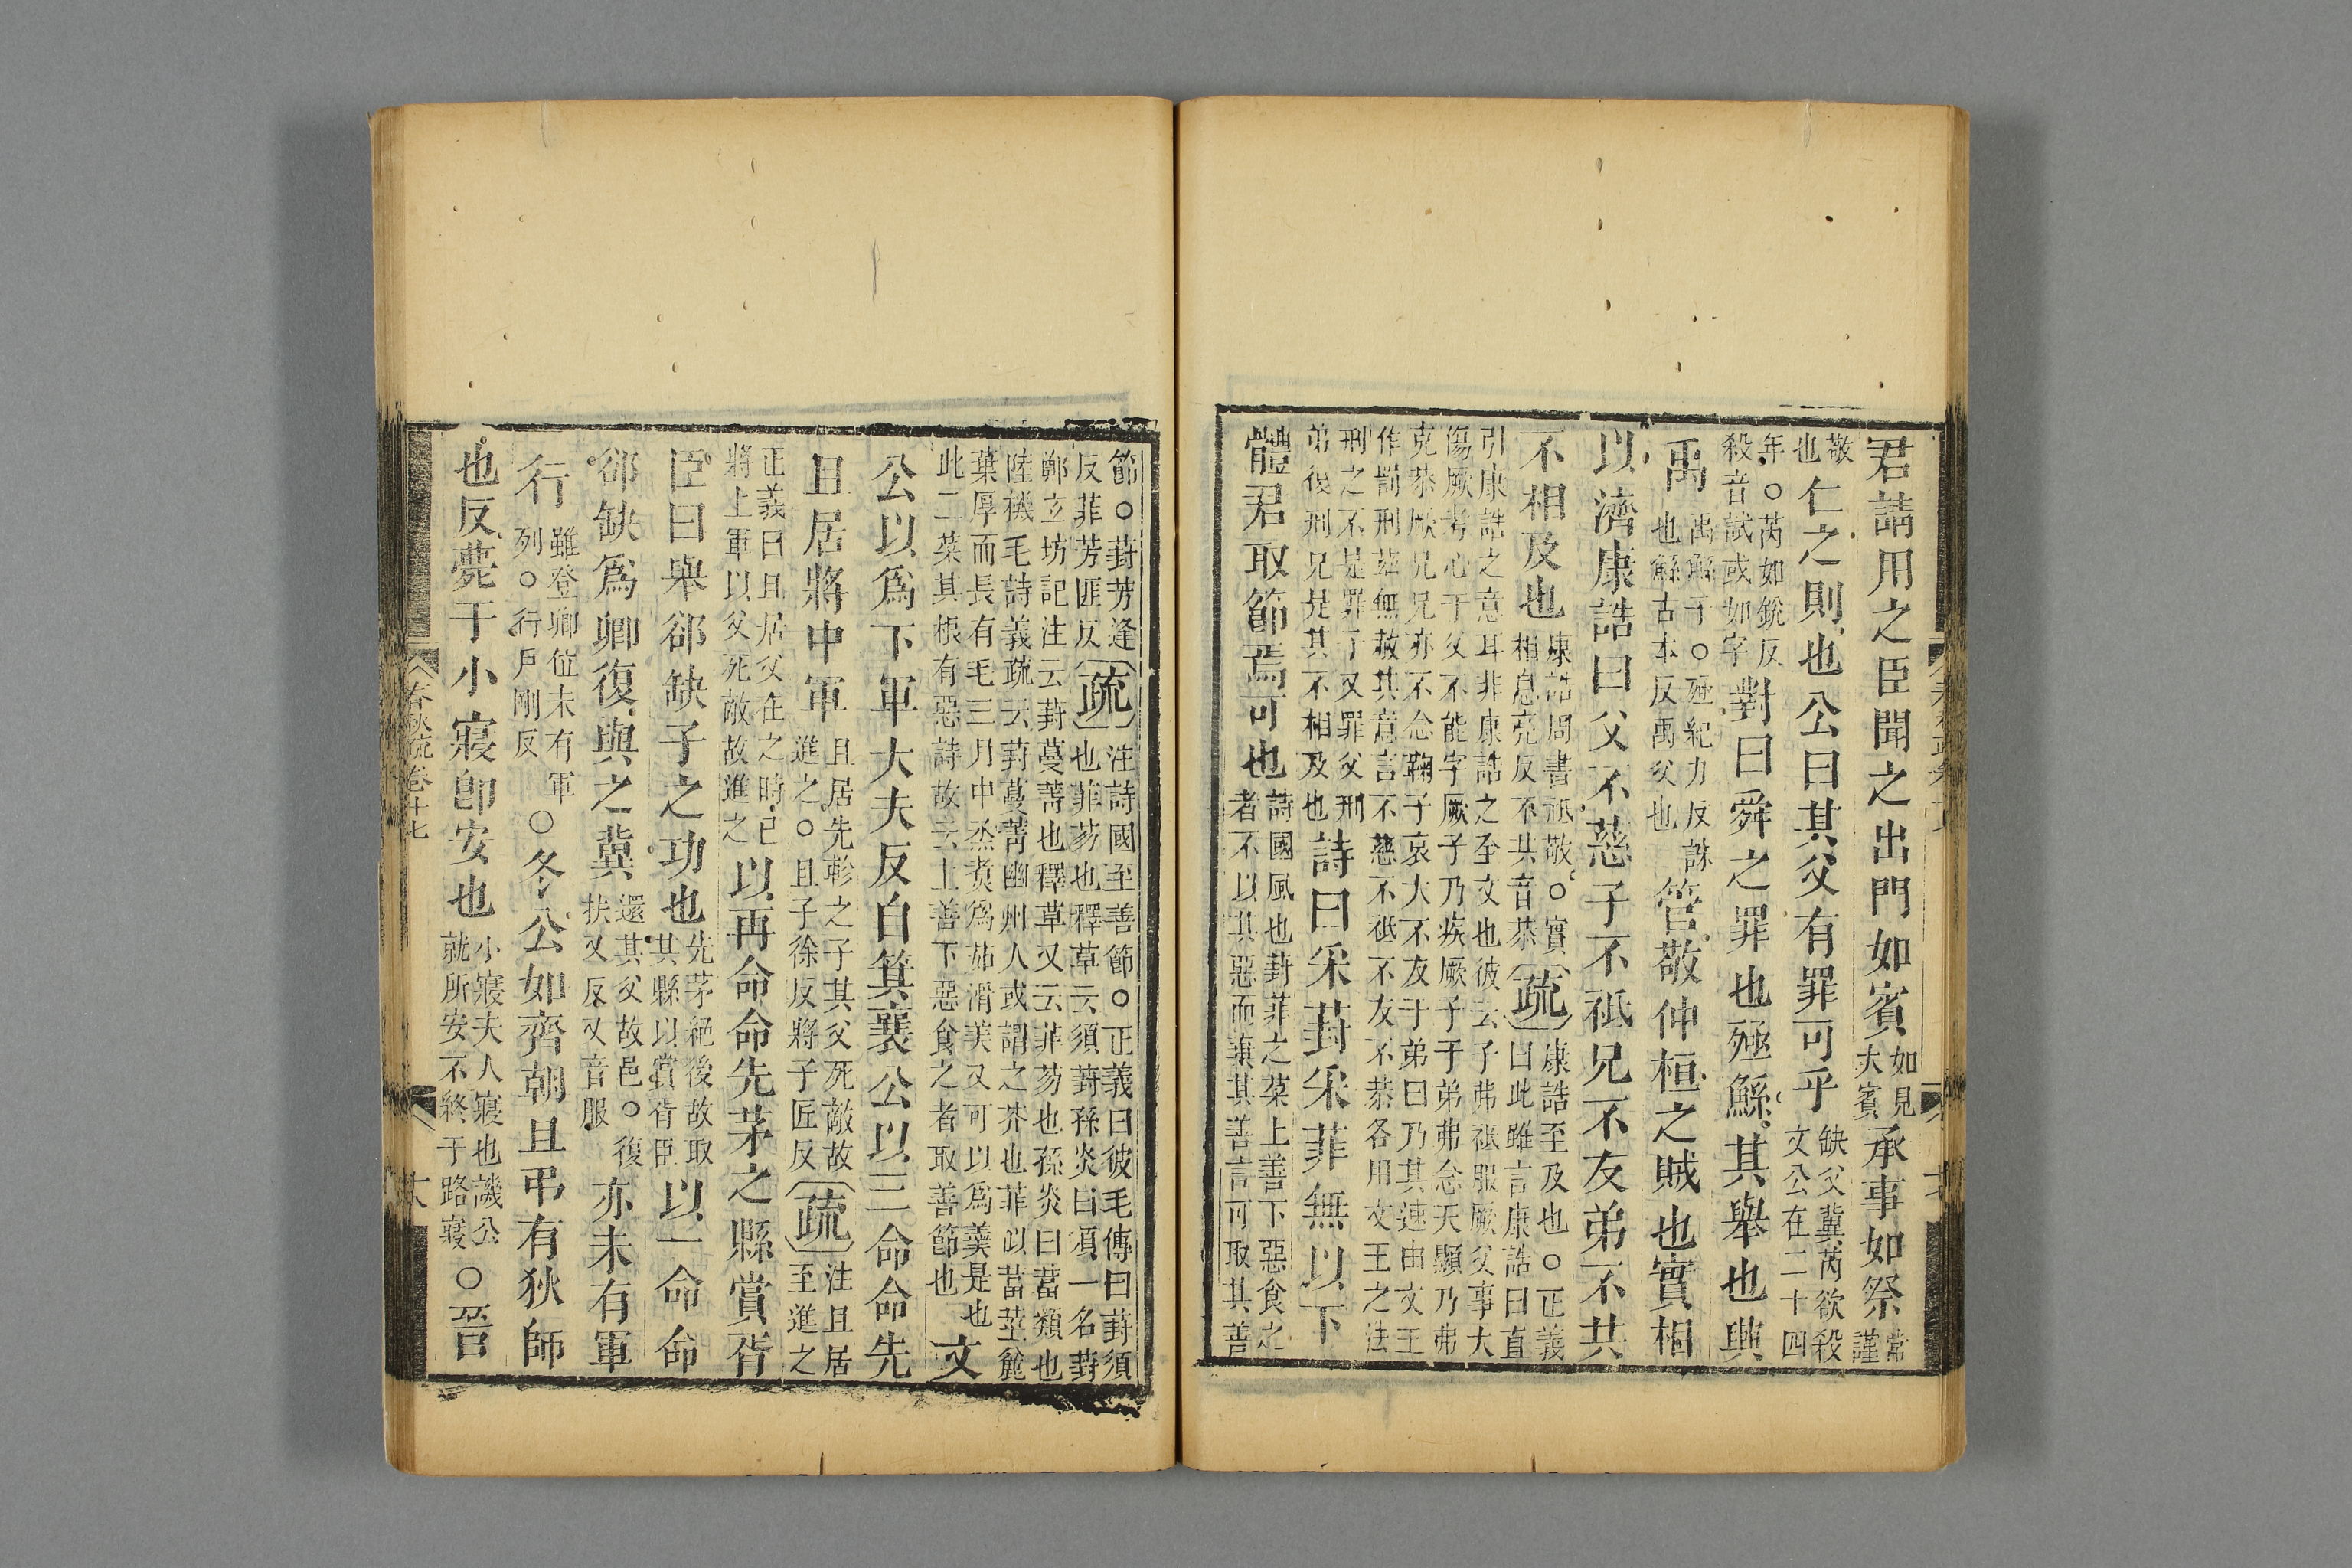 君請用之臣聞之出門如賓如見大賓承事如祭常謹
敬也仁之則也公曰其父有罪可乎缺父冀芮欲殺文公在二十四
年○芮如銳反殺音試或如字對曰舜之罪也殛鯀其舉也興
禹禹鯀子○殛紀力反誅也鯀古本反禹父也管敬仲桓之賊也實相
以濟康誥曰父不慈子不祗兄不友弟不共
不相及也康誥周書祗敬○實相息亮反不共音恭疏康誥至及也○正義曰此雖言康誥曰直
引康誥之意耳非康誥之至文也彼云子弗祗服厥父事大
傷厥考心于父不能字厥子乃疾厥子于弟弗念天顯乃弗
克恭厥兄兄亦不念鞠子哀大不友于弟曰乃其速由文王
作罰刑茲無赦其意言不慈不祗不友不恭各用文王之法
刑之不是罪子又罪父刑弟復刑兄是其不相及也詩曰采葑采菲無以下
體君取節焉可也詩國風也葑菲之菜上善下惡食之者不以其惡而棄其善言可取其善
節○葑芳逢反菲芳匪反疏注詩國至善節○正義曰彼毛傳曰葑須也菲芴也釋草云須葑孫炎曰須一名葑
鄭玄坊記注云葑蔓菁也釋草又云菲芴也孫炎曰葍類也
陸機毛詩義疏云葑蔓菁幽州人或謂之芥也菲似葍莖麄
葉厚而長有毛三月中烝煑爲茹滑美又可以爲羹是也
此二菜其根有惡詩故云上善下惡食之者取善節也文
公以爲下軍大夫反自箕襄公以三命命先
且居將中軍且居先軫之子其父死敵故進之○且子徐反將子匠反疏注且居至進之
正義曰且居父在之時已將上軍以父死敵故進之以再命命先茅之縣賞胥
臣曰舉郤缺子之功也先茅絕後故取其縣以賞胥臣以一命命
郤缺爲卿復與之冀還其父故邑○復扶又反又音服亦未有軍
行雖登卿位未有軍列○行戶剛反○冬公如齊朝且弔有狄師
也反薨于小寢卽安也小寢夫人寢也譏公就所安不終于路寢○晉
春秋疏卷十七